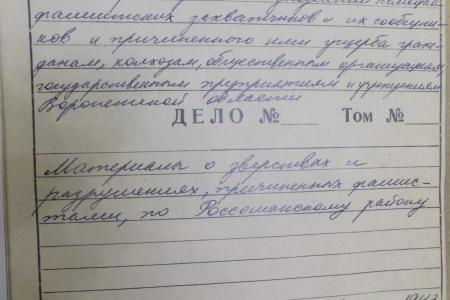 злодеяний немецко-
фашистских захватчиков и их сообщни-
ков и причиненного ими ущерба граж-
данам, колхозам, общественным организациям,
государственным предприятиям и учреждениям
Воронежской области
ДЕЛО № Том №
Материалы о зверствах и
разрушениях, причиненных фашис-
тами, по Россошанскому району
1943